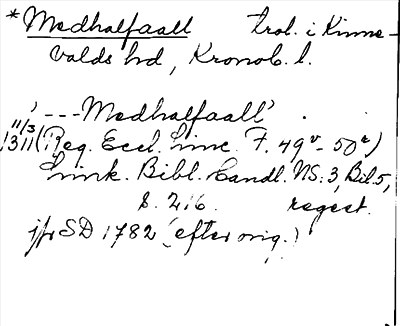 *Medhalfaall trol. i Kinne-
valds hd, Kronob. l.
'---Medhalfaall'
11/3
1311 (Reg. Eccl. Linc. F. 49v - 50r)
Link. Bibl. Handl. NS. 3, Bil. 5,
s. 216. regest.
jfr SD 1782 (efter orig.)